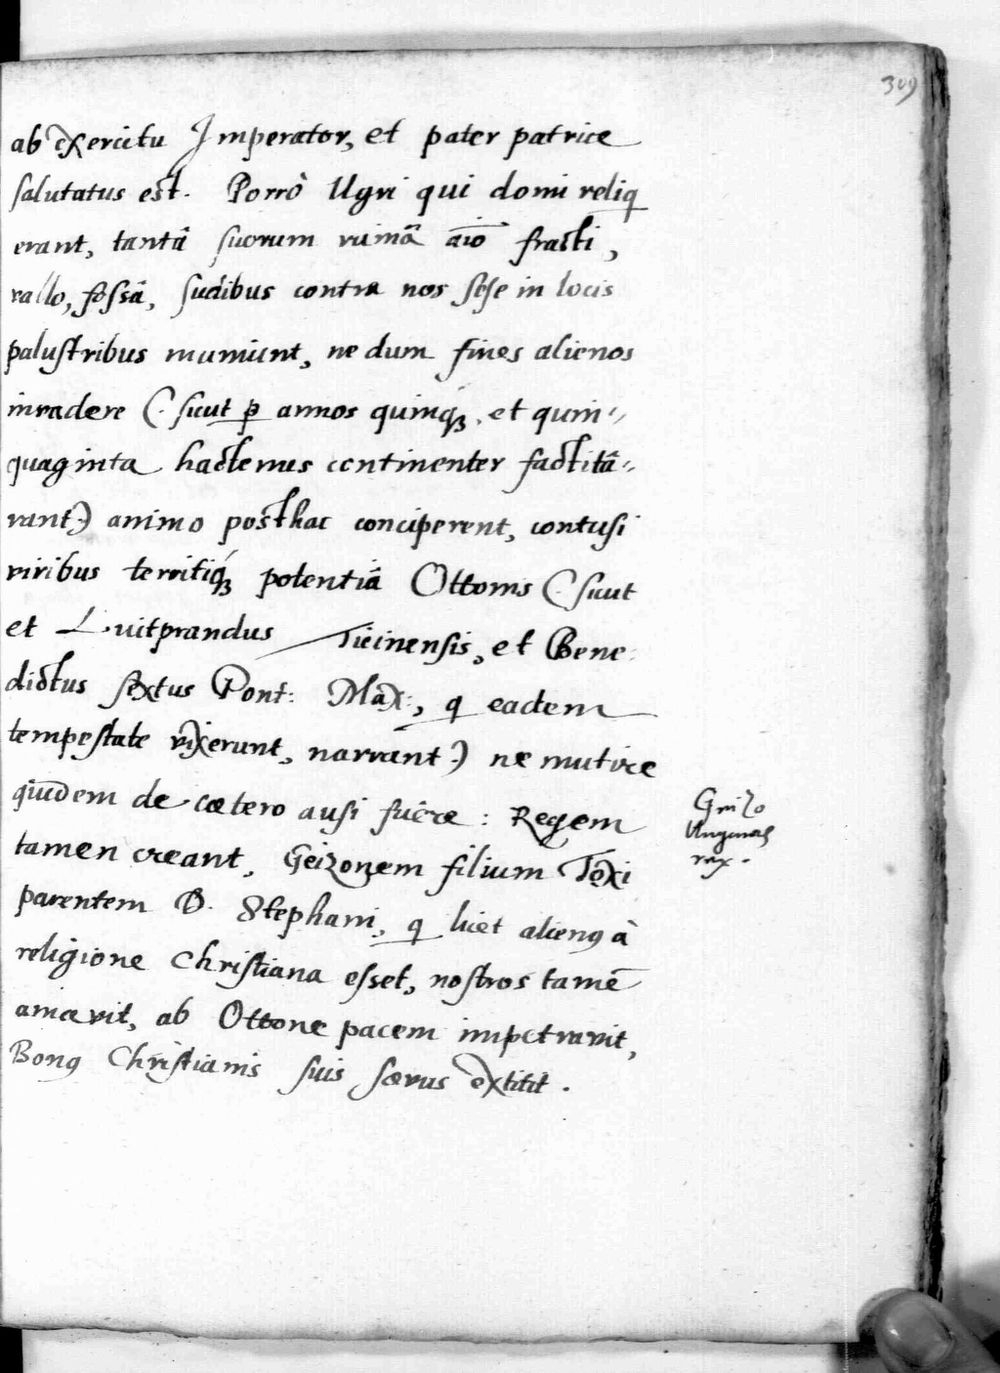 309
ab exercitu Imperator, et pater patriæ
salutatus est. Porrò Ugri qui domi reliq
erant, tantâ suorum ruinâ aīo fracti,
vallo, fossâ, sudibus contra nos sese in locis
palustribus muniunt, nedum fines alienos
invadere (sicut ꝑ annos quinq́ꝫ, et quin〃
quaginta hactenus continenter factitâ〃
rant) animo posthac conciperent, contusi
viribus territiq́ꝫ potentiâ Ottonis (sicut
et Luitprandus Ticinensis, et Bene:
dictus sextus Pont: Max:, q eadem
tempestate vixerunt, narrant) ne mutire
quidem de cætero ausi fuêre: Regem
tamen creant, Geizonem filium Toxi
parentem D. Stephani, q licet alienꝰ à
religione Christiana esset, nostros tamē
amavit, ab Ottone pacem impetravit,
Bonꝰ Christianis suis sævus extitit.
Geizo
rex.